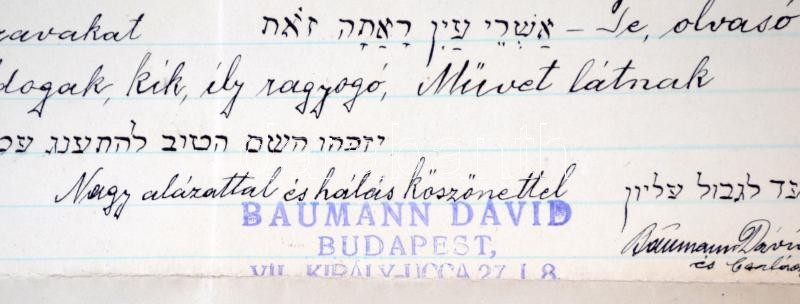 zavakat אַשְׁרֵי עַיִן רָאֲתָה זֹאת – Te, olvasó
dogak, kik, ily ragyogó, Művet látnak
יזכהו השם הטוב להתענג
Nagy alázattal és hálás köszönettel עד לגבול עליון
BAUMANN DÁVID
BUDAPEST,
VII. KIRÁLY-UCCA 27. I. 8.
Baumann Dávid
és